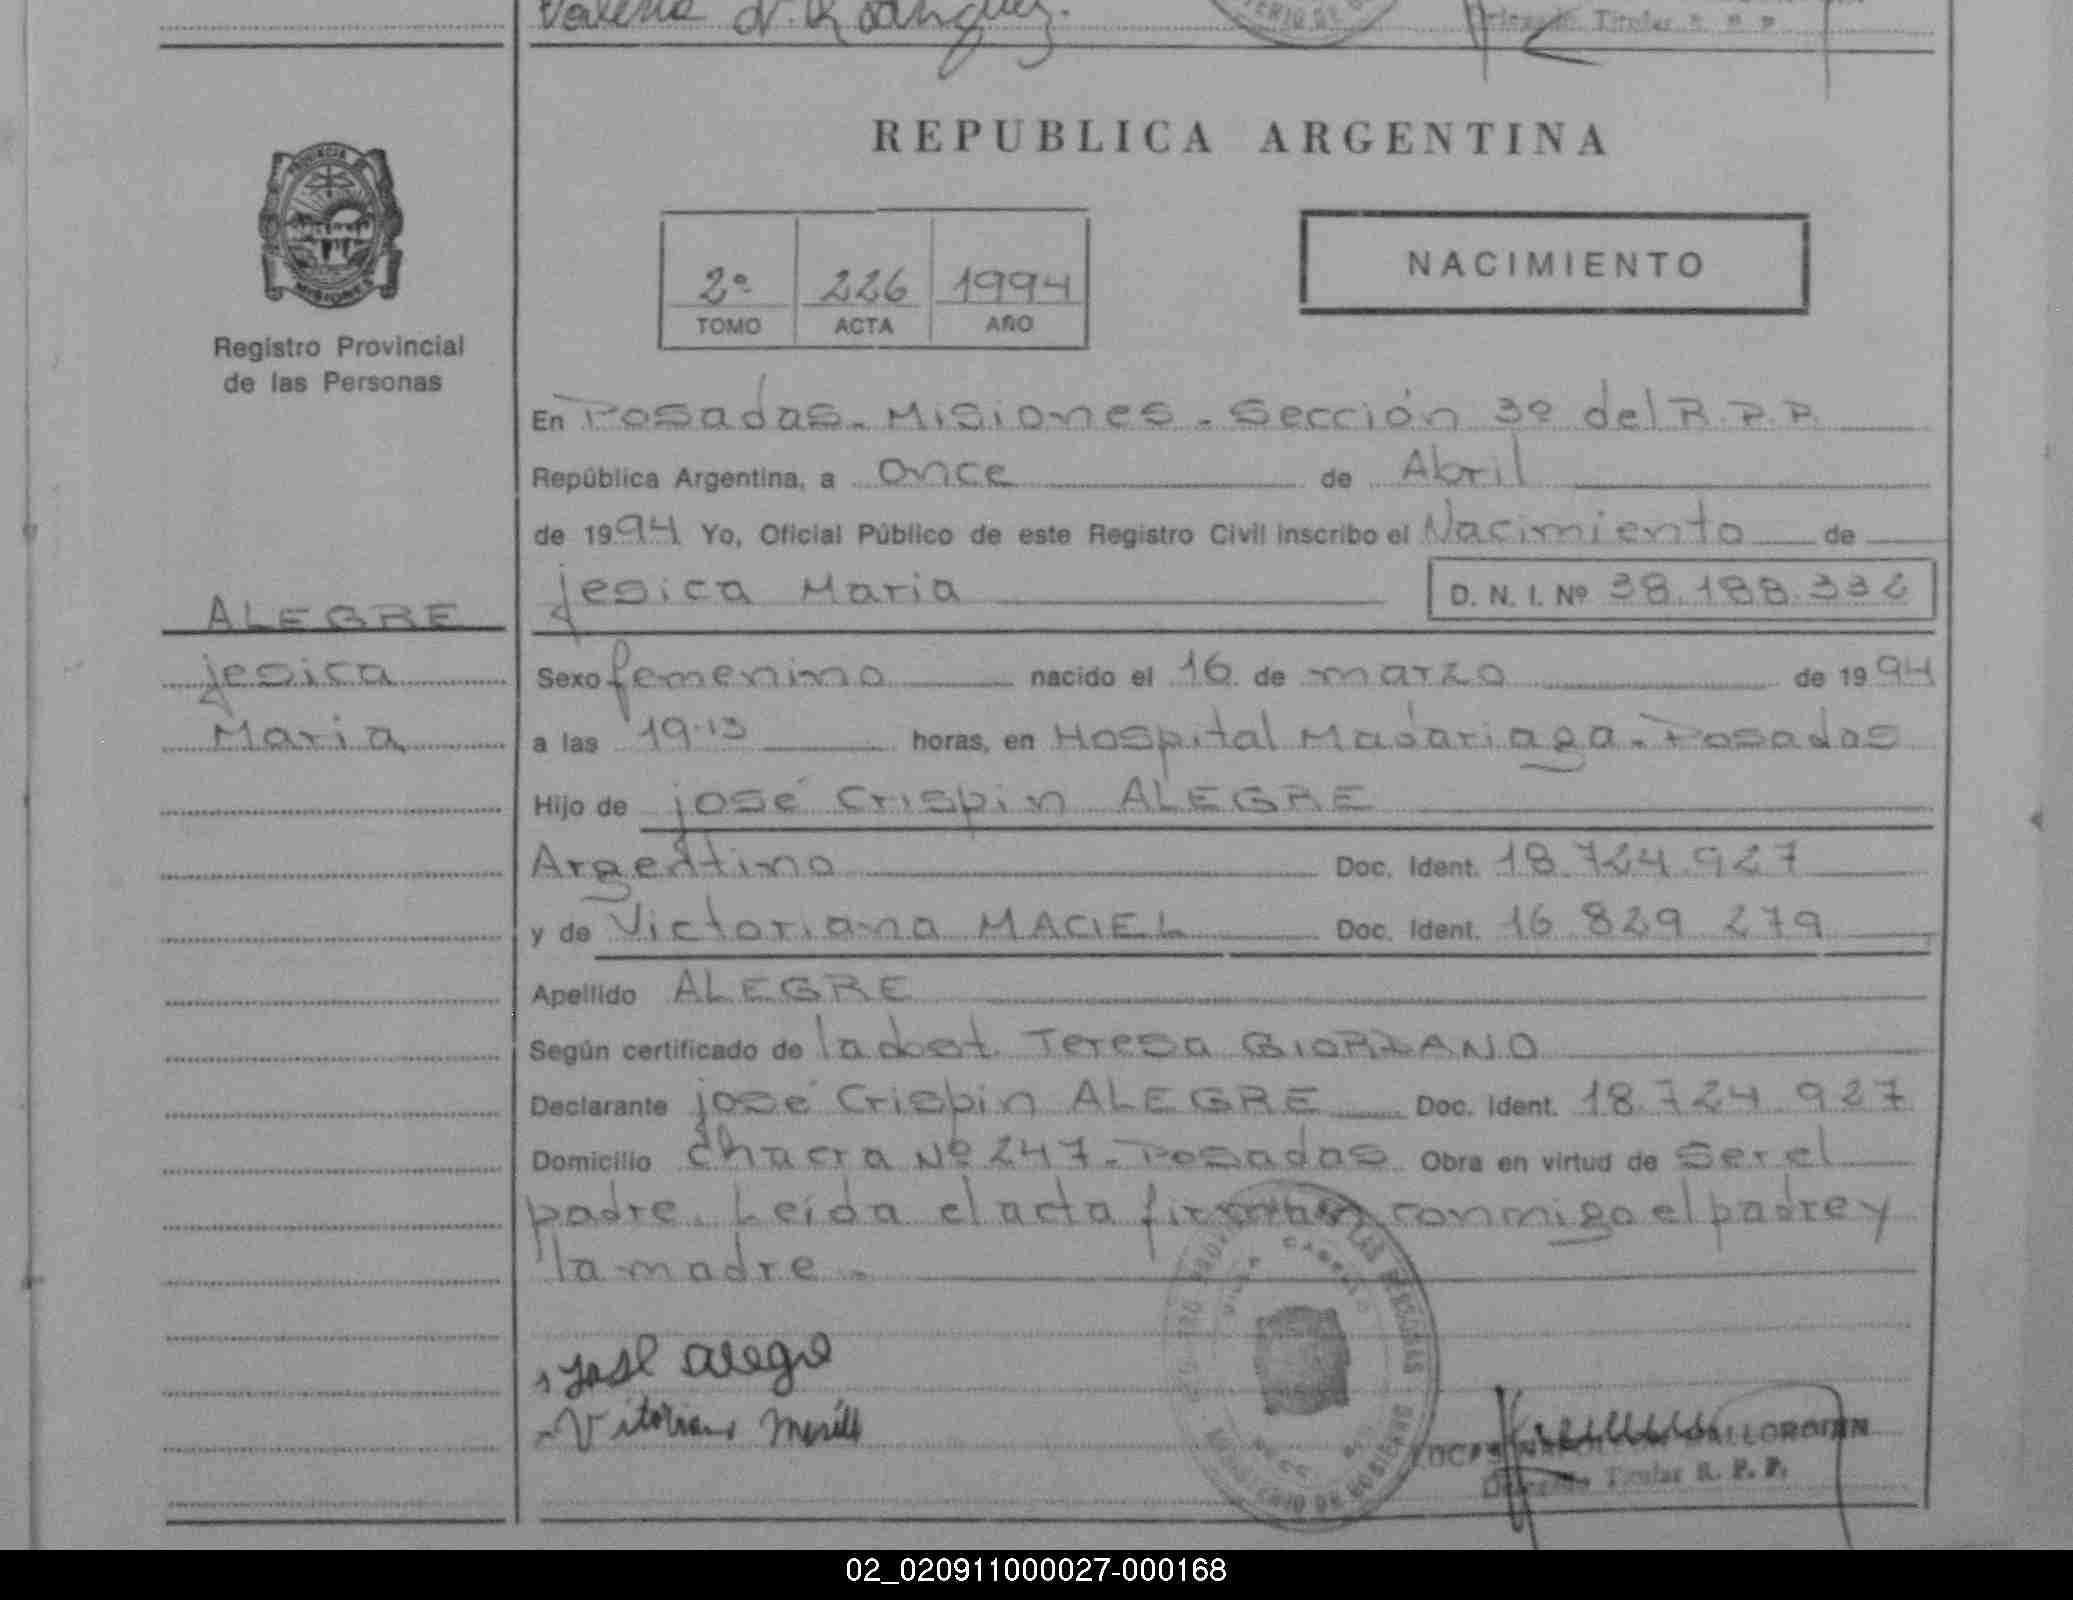 Valeria N. Rodriguez.
Titular R. P. P.
REPUBLICA ARGENTINA
PROVINCIA DE
MISIONES
2º 226 1994
TOMO ACTA AÑO
NACIMIENTO
Registro Provincial
de las Personas
En Posadas - Misiones - Sección 3º del R.P.P.
República Argentina, a once de Abril
de 1994 Yo, Oficial Público de este Registro Civil inscribo el Nacimiento de
ALEGRE
jesica Maria
D. N. I. Nº 38.188.332
jesica
Sexo femenino nacido el 16 de marzo de 1994
Maria
a las 19.13 horas, en Hospital Madariaga - Posadas
Hijo de josé Crispin ALEGRE
Argentino Doc. Ident. 18.724.927
y de Victoriana MACIEL Doc. Ident. 16 829 279
Apellido ALEGRE
Según certificado de la obst. Teresa GIORDANO
Declarante josé Crispin ALEGRE Doc. Ident. 18.724.927
Domicilio Chacra Nº 247 - Posadas Obra en virtud de ser el
padre. Leída el acta firman conmigo el padre y
la madre.
VILLA CABELLO
MINISTERIO DE GOBIERNO
José Alegre
Titular R. P. P.
02_020911000027-000168